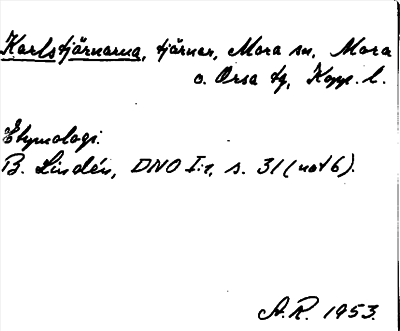 Karlstjärnarna, tjärnar, Mora sn, Mora
o. Orsa tg, Kopp. l.
Etymologi.
B. Lindén, DNO I:1, s. 31 (not 6).
A.R. 1953.